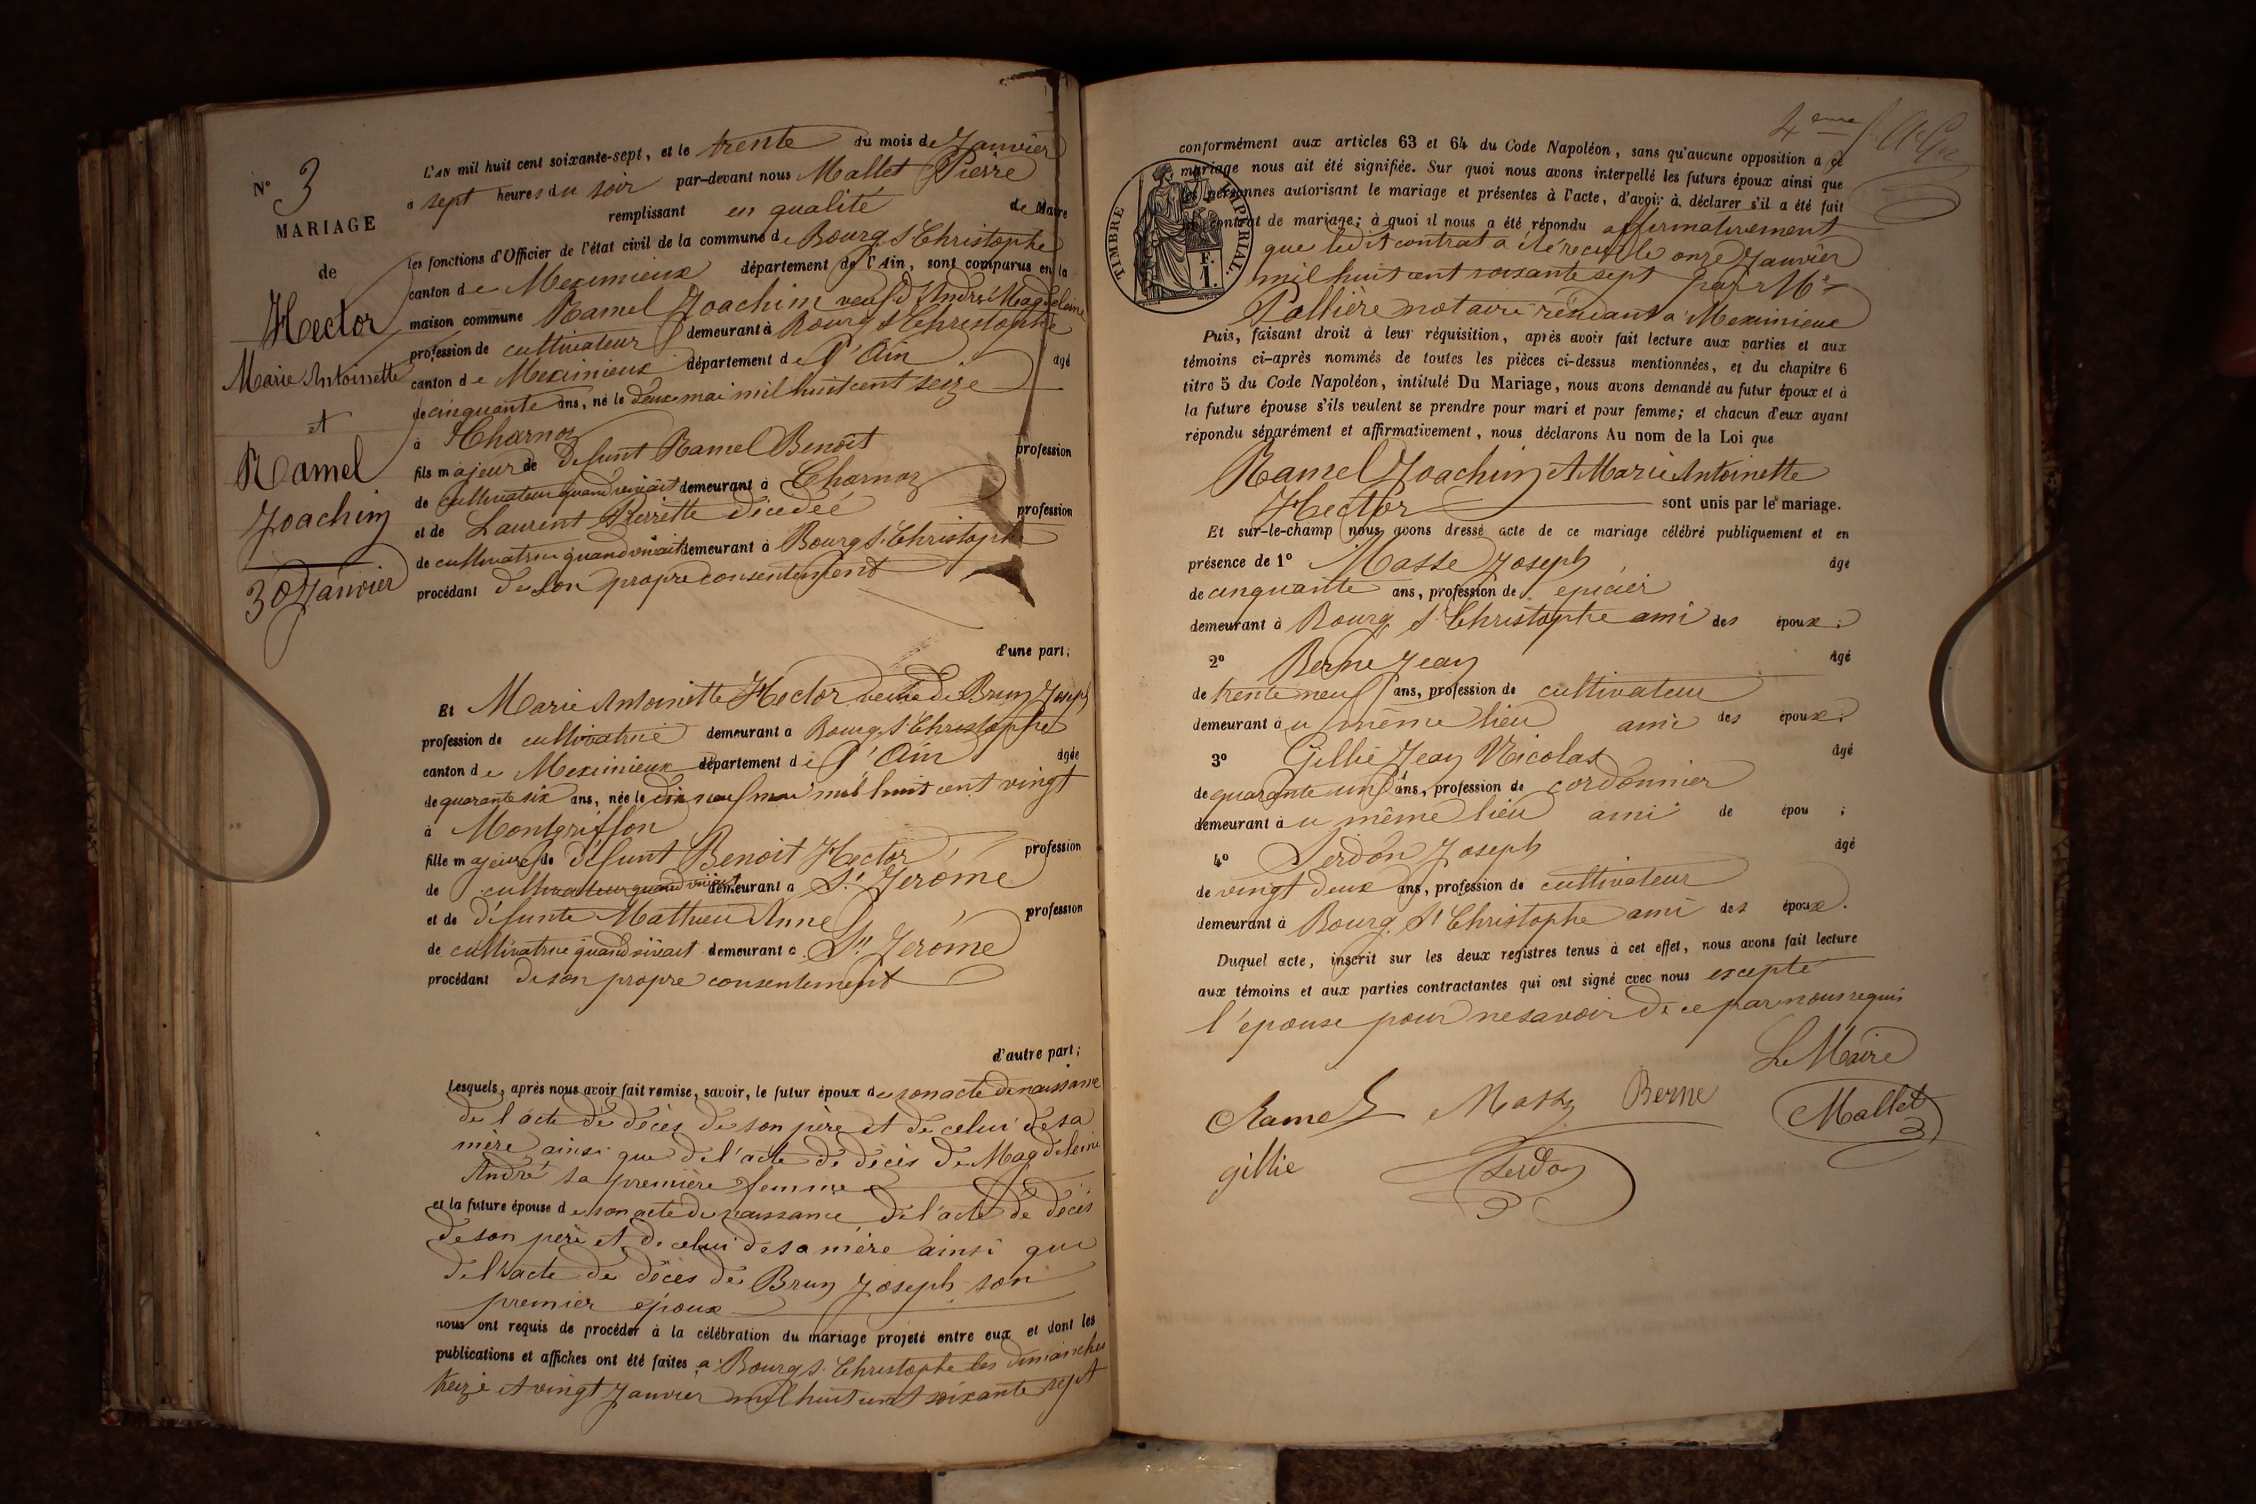 N° 3
MARIAGE
de
Hector
Marie Antoinette
et
Ramel
Joachim
30 Janvier
L'AN mil huit cent soixante-sept, et le trente du mois de Janvier
à sept heures du soir par-devant nous Mallet Pierre
remplissant en qualité de Maire
les fonctions d'Officier de l'état civil de la commune de Bourg St Christophe
canton de Meximieux département de l'Ain, sont comparus en la
maison commune Ramel Joachim veuf d'André Magdeleine
profession de cultivateur demeurant à Bourg St Christophe
canton de Meximieux département de l'Ain âgé
de cinquante ans, né le deux mai mil huit cent seize
à Charnoz
fils majeur de défunt Ramel Benoît profession
de cultivateur quand vivait demeurant à Charnoz
et de Laurent Pierrette décédée profession
de cultivatrice quand vivait demeurant à Bourg St Christophe
procédant de son propre consentement
d'une part;
Et Marie Antoinette Hector veuve de Brun Joseph
profession de cultivatrice demeurant à Bourg St Christophe
canton de Meximieux département de l'Ain âgée
de quarante six ans, née le dix neuf mai mil huit cent vingt
à Montgriffon
fille majeure de défunt Benoit Hector profession
de cultivateur quand vivait demeurant à St Jerome
et de défunte Mathieu Anne profession
de cultivatrice quand vivait demeurant à St Jerôme
procédant de son propre consentement
d'autre part;
Lesquels, après nous avoir fait remise, savoir, le futur époux de son acte de naissance
de l'acte de décès de son père et de celui de sa
mère ainsi que de l'acte de décès de Magdeleine
André sa première femme
et la future épouse de son acte de naissance de l'acte de décès
de son père et de celui de sa mère ainsi que
de l'acte de décès de Brun Joseph son
premier époux
nous ont requis de procéder à la célébration du mariage projeté entre eux et dont les
publications et affiches ont été faites à Bourg St Christophe les dimanches
treize et vingt Janvier mil huit cent soixante sept
4eme
conformément aux articles 63 et 64 du Code Napoléon, sans qu'aucune opposition à ce
mariage nous ait été signifiée. Sur quoi nous avons interpellé les futurs époux ainsi que
les personnes autorisant le mariage et présentes à l'acte, d'avoir à déclarer s'il a été fait
un contrat de mariage; à quoi il nous a été répondu affirmativement
TIMBRE IMPÉRIAL
que ledit contrat a été reçu le onze Janvier
mil huit cent soixante sept par Me
Pallière notaire résidant à Meximieux
Puis, faisant droit à leur réquisition, après avoir fait lecture aux parties et aux
témoins ci-après nommés de toutes les pièces ci-dessus mentionnées, et du chapitre 6
titre 5 du Code Napoléon, intitulé Du Mariage, nous avons demandé au futur époux et à
la future épouse s'ils veulent se prendre pour mari et pour femme; et chacun d'eux ayant
répondu séparément et affirmativement, nous déclarons Au nom de la Loi que
Ramel Joachim et Marie Antoinette
Hector sont unis par le mariage.
Et sur-le-champ nous avons dressé acte de ce mariage célébré publiquement et en
présence de 1° Masse Joseph âgé
de cinquante ans, profession de epicier
demeurant à Bourg St Christophe ami des époux;
2° Berne Jean âgé
de trente neuf ans, profession de cultivateur
demeurant au même lieu ami des époux;
3° Gillie Jean Nicolas âgé
de quarante un ans, profession de cordonnier
demeurant au même lieu ami de épou ;
4° Perdon Joseph âgé
de vingt deux ans, profession de cultivateur
demeurant à Bourg St Christophe ami des époux.
Duquel acte, inscrit sur les deux registres tenus à cet effet, nous avons fait lecture
aux témoins et aux parties contractantes qui ont signé avec nous excepté
l'epouse pour ne savoir de ce par nous requis
Le Maire
Ramel Masse Berne Mallet
gillie Perdon